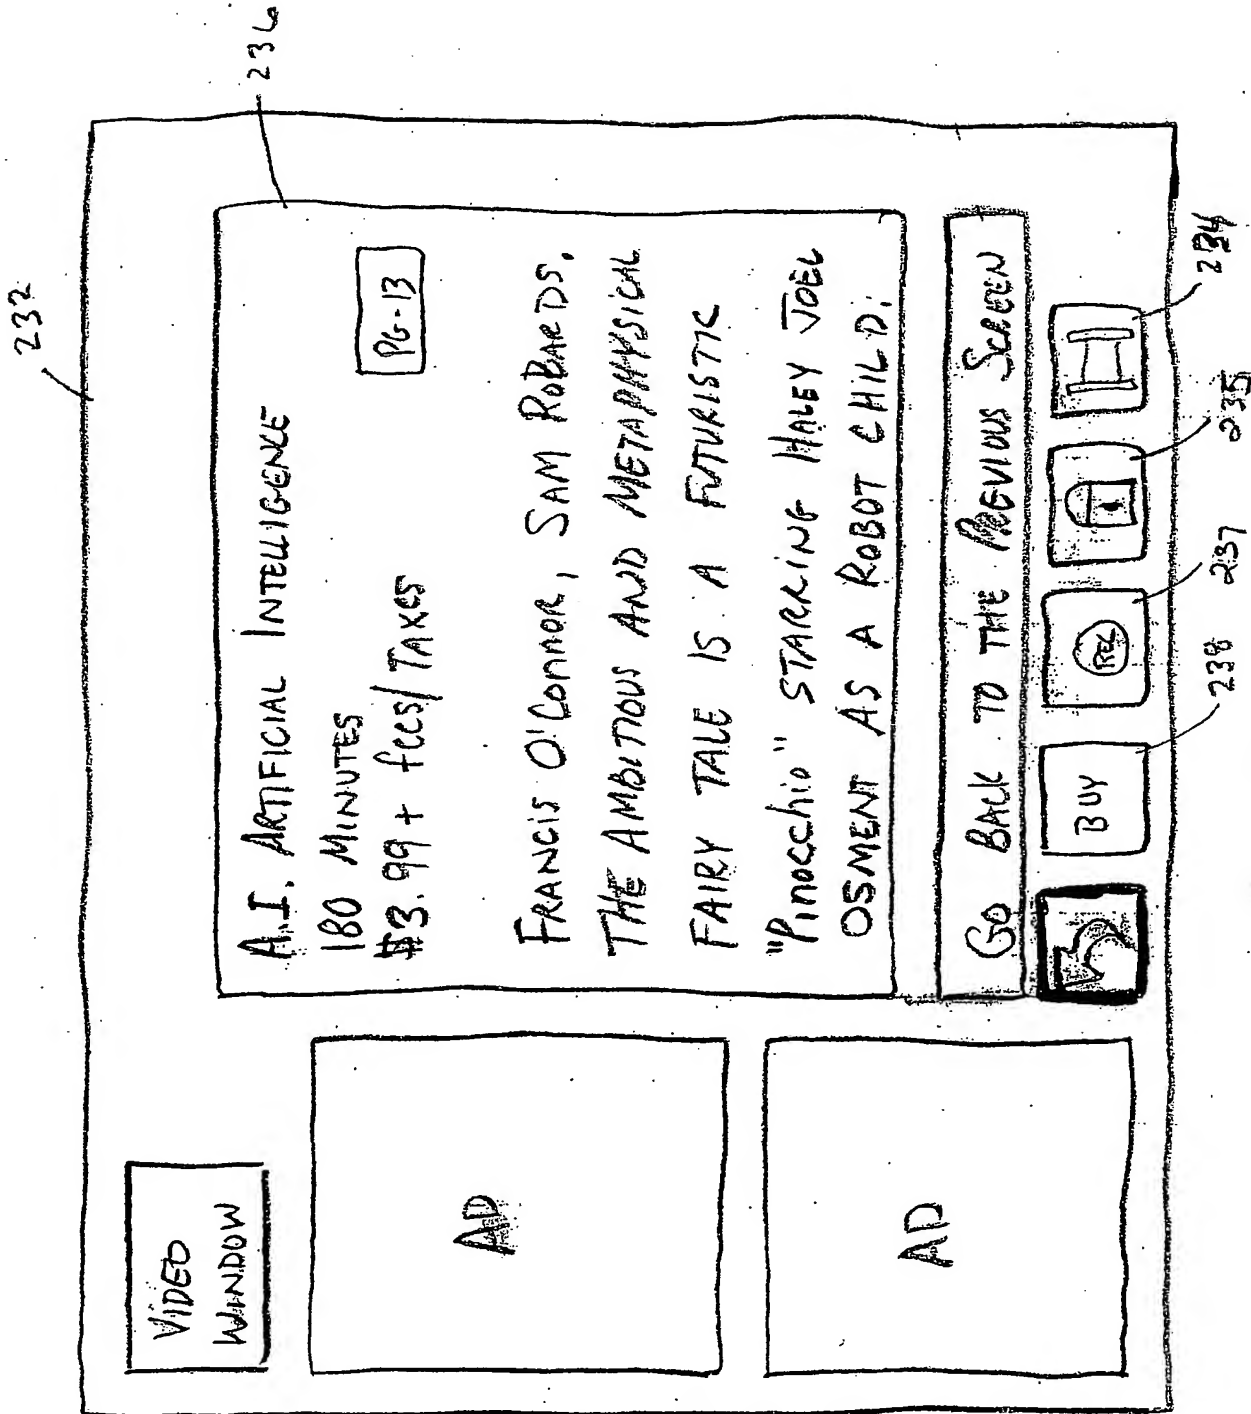 232
236
VIDEO
WINDOW
AD
AD
A.I. ARTIFICIAL INTELLIGENCE
180 MINUTES
$3.99 + fees/TAXES
PG-13
FRANCIS O'CONNOR, SAM ROBARDS.
THE AMBITIOUS AND METAPHYSICAL
FAIRY TALE IS A FUTURISTIC
"Pinocchio" STARRING HALEY JOEL
OSMENT AS A ROBOT CHILD.
GO BACK TO THE PREVIOUS SCREEN
BUY
REC
238
237
235
234